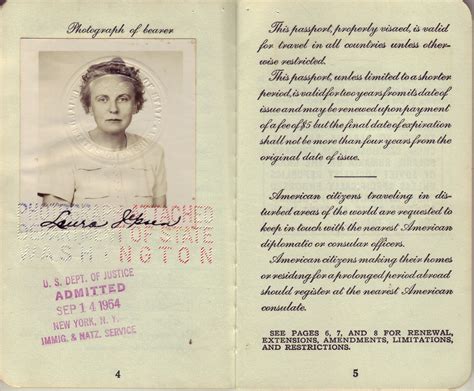 Photograph of bearer
ATTACHED
Laura
OF STATE
WASHINGTON
U. S. DEPT. OF JUSTICE
ADMITTED
SEP 14 1954
NEW YORK, N. Y.
IMMIG. & NATZ. SERVICE
4
This passport, properly visaed, is valid
for travel in all countries unless other-
wise restricted.
This passport, unless limited to a shorter
period, is valid for two years from its date of
issue and may be renewed upon payment
of a fee of $5 but the final date of expiration
shall not be more than four years from the
original date of issue.
American citizens traveling in dis-
turbed areas of the world are requested to
keep in touch with the nearest American
diplomatic or consular officers.
American citizens making their homes
or residng for a prolonged period abroad
should register at the nearest American
consulate.
SEE PAGES 6, 7, AND 8 FOR RENEWAL,
EXTENSIONS, AMENDMENTS, LIMITATIONS,
AND RESTRICTIONS.
5